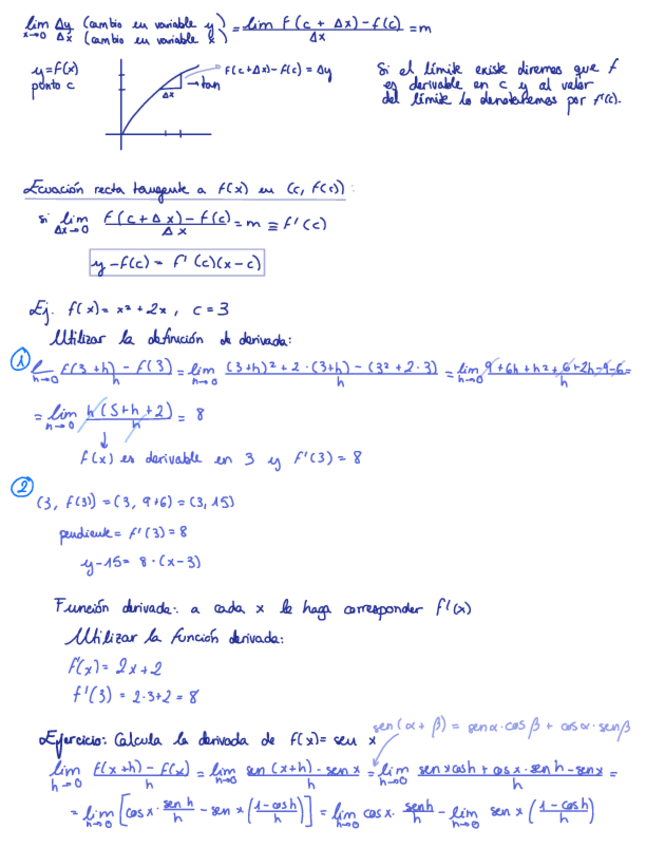 lim x→0 Δy/Δx (cambio en variable y) (cambio en variable x) = lim F(c + Δx) - f(c) / Δx = m
y = F(x)
punto c
F(c+Δx) - F(c) = Δy
→ tan
Δx
Si el límite existe diremos que f
es derivable en c y al valor
del límite lo denotaremos por f'(c).
Ecuación recta tangente a F(x) en (c, F(c)):
si lim Δx→0 F(c+Δx) - F(c) / Δx = m ≡ F'(c)
y - F(c) = F'(c)(x - c)
Ej. f(x) = x² + 2x, c = 3
Utilizar la definición de derivada:
① L h→0 F(3+h) - F(3) / h = lim h→0 (3+h)² + 2·(3+h) - (3² + 2·3) / h = lim h→0 9 + 6h + h² + 6 + 2h - 9 - 6 / h =
= lim h→0 h(5+h+2) / h = 8
↓
f(x) es derivable en 3 y F'(3) = 8
②
(3, F(3)) = (3, 9+6) = (3, 15)
pendiente = F'(3) = 8
y - 15 = 8·(x - 3)
Función derivada: a cada x le haga corresponder f'(x)
Utilizar la función derivada:
F'(x) = 2x + 2
f'(3) = 2·3+2 = 8
sen(α + β) = sen α·cos β + cos α·sen β
Ejercicio: Calcula la derivada de F(x) = sen x
lim h→0 F(x+h) - F(x) / h = lim h→0 sen(x+h) - sen x / h = lim h→0 sen x cos h + cos x · sen h - sen x / h =
= lim h→0 [cos x · sen h / h - sen x (1 - cos h / h)] = lim h→0 cos x · sen h / h - lim h→0 sen x (1 - cos h / h)